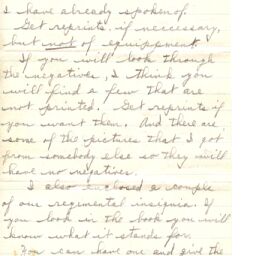 I have already spoken of.
Get reprints, if neccessary,
but not of equippment.
If you will look through
the negatives, I think you
will find a few that are
not printed. Get reprints if
you want them. And there are
some of the pictures that I got
from somebody else so they will
have no negatives.
I also enclosed a couple
of our regimental insignia. If
you look in the book you will
know what it stands for.
You can have one and give the